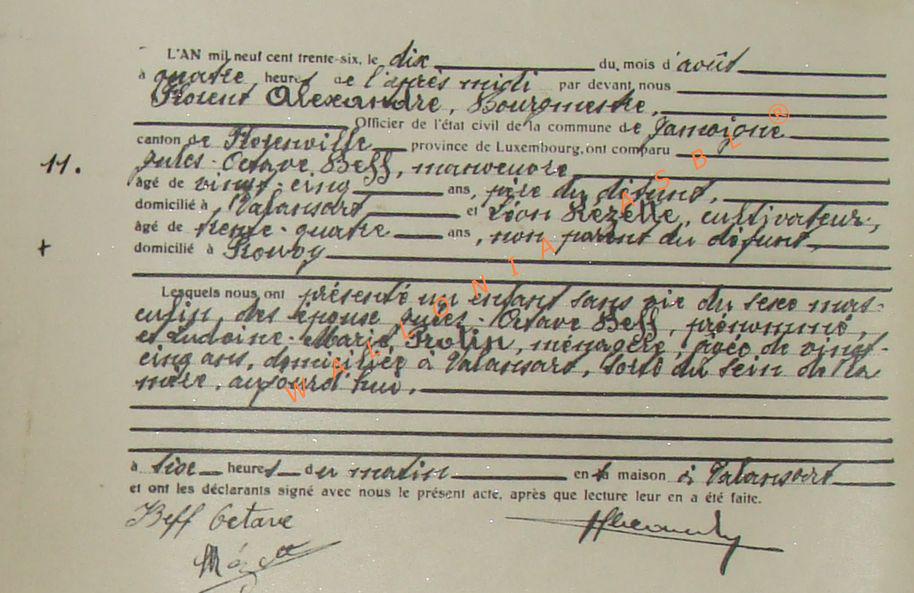 L'AN mil neuf cent trente-six, le dix du, mois d'août
à quatre heures de l'après midi par devant nous
Florent Alexandre, Bourgmestre,
Officier de l'état civil de la commune de Jamoigne
canton de Florenville province de Luxembourg, ont comparu
Jules-Octave Beff, manoeuvre
11.
âgé de vingt-cinq ans, père du défunt,
domicilié à Valansart et Léon Rézette, cultivateur,
âgé de trente-quatre ans, non parent du défunt,
+
domicilié à
Lesquels nous ont présenté un enfant sans vie du sexe mas-
culin, des époux Jules-Octave Beff, prénommé,
et Ludoine-Marie Frolin, ménagère, âgée de vingt-
cinq ans, domiciliée à Valansart, sorti du sein de la
mère, aujourd'hui,
à six heures du matin en sa maison à Valansart
et ont les déclarants signé avec nous le présent acte, après que lecture leur en a été faite.
Beff Octave
WALLONIA ASBL ®